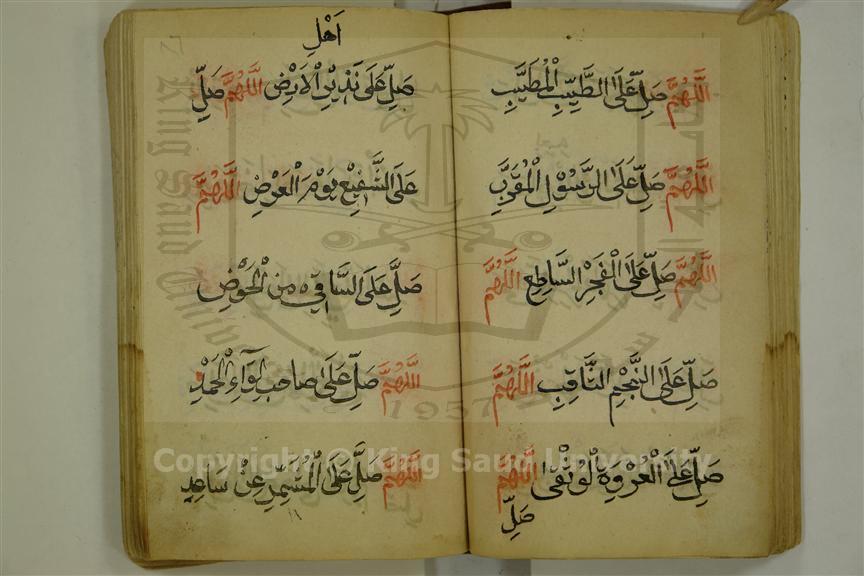 اَللّٰهُمَّ صَلِّ عَلَى الطَّيِّبِ الْمُطَيَّبِ
اَللّٰهُمَّ صَلِّ عَلَى الرَّسُوْلِ الْمُقَرَّبِ
اَللّٰهُمَّ صَلِّ عَلَى الْفَجْرِ السَّاطِعِ اَللّٰهُمَّ
صَلِّ عَلَى النَّجْمِ الثَّاقِبِ اَللّٰهُمَّ
صَلِّ عَلَى الْعُرْوَةِ الْوُثْقٰى اَللّٰهُمَّ
صَلِّ
اَهْلِ
صَلِّ عَلَى نَذِيْرِ الْاَرْضِ اَللّٰهُمَّ صَلِّ
عَلَى الشَّفِيْعِ يَوْمَ الْعَرْضِ اَللّٰهُمَّ
صَلِّ عَلَى السَّاقِيْ مِنَ الْحَوْضِ
اَللّٰهُمَّ صَلِّ عَلَى صَاحِبِ لِوَآءِ الْحَمْدِ
اَللّٰهُمَّ صَلِّ عَلَى الْمُشَمِّرِ عَنْ سَاعِدِ
King Saud University
1957
Copyright © King Saud University